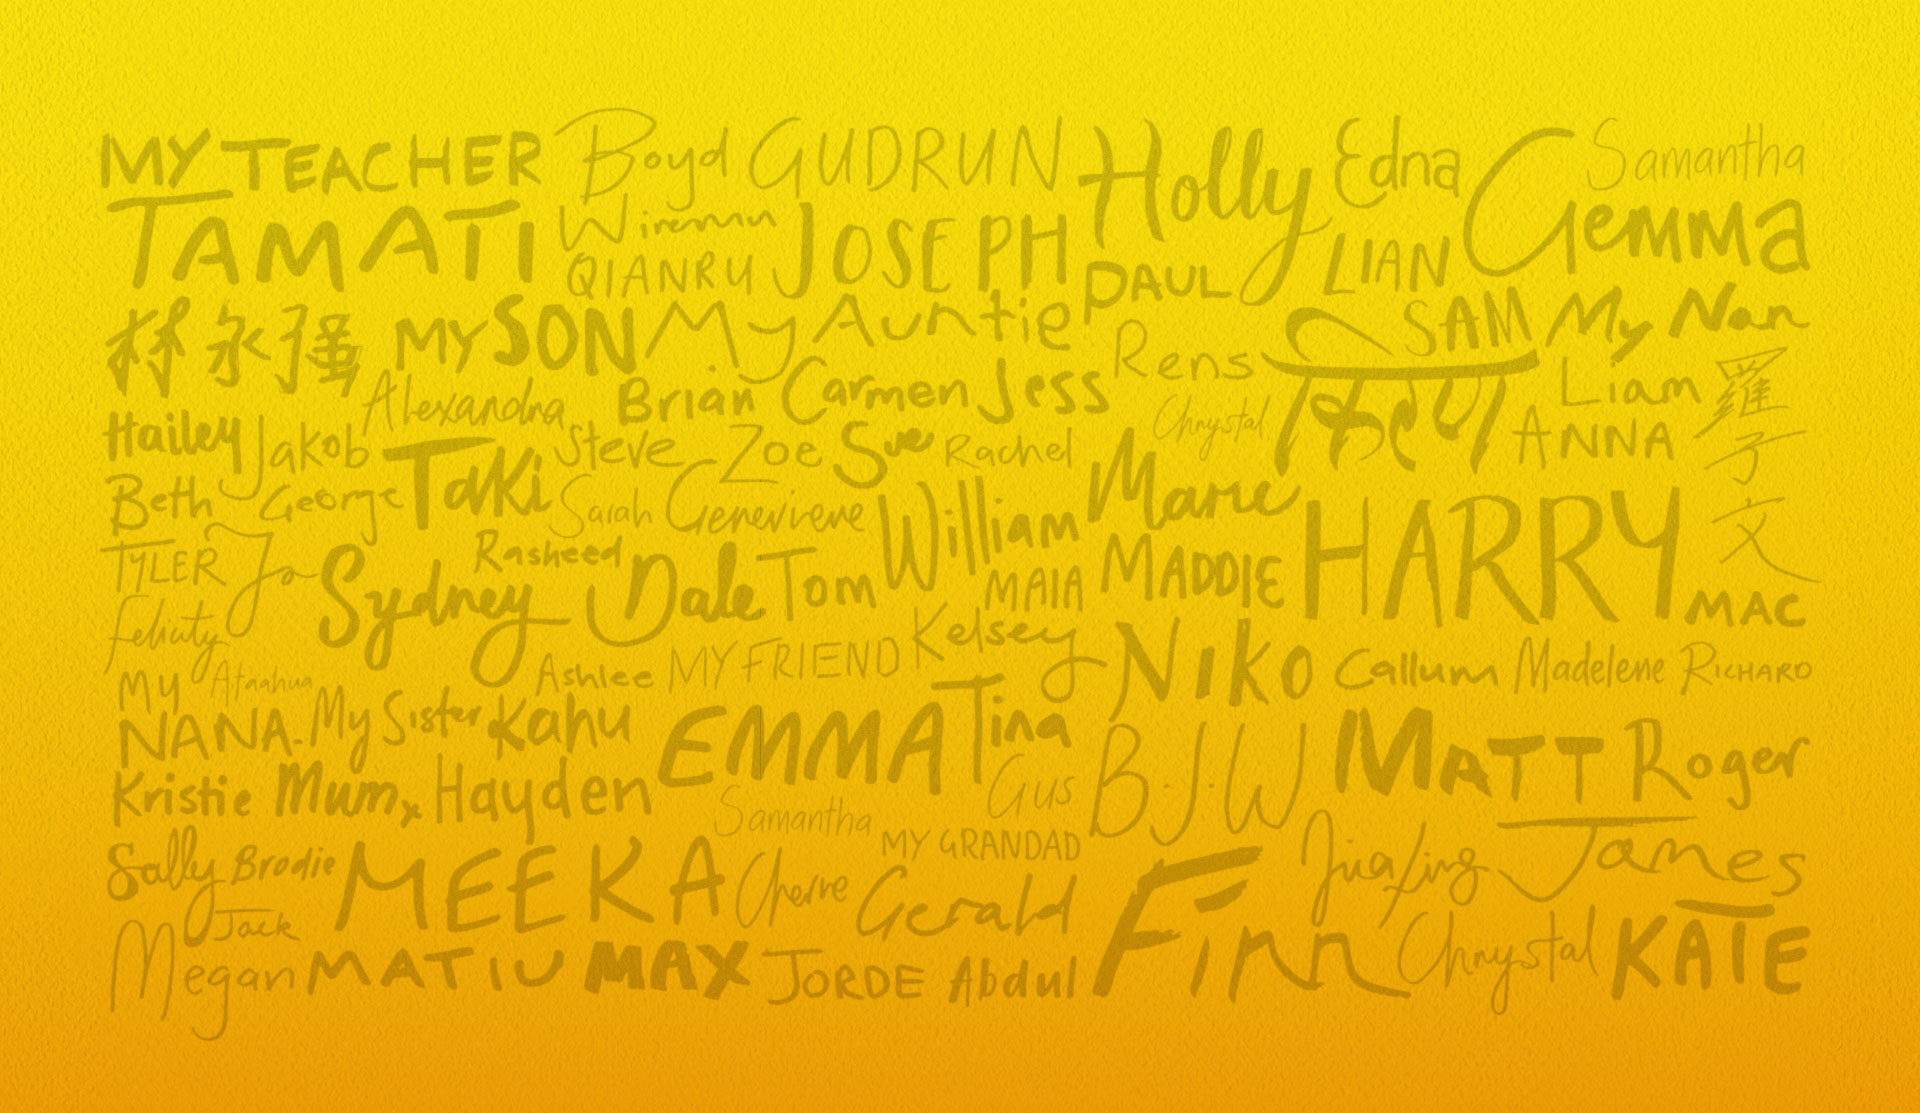 MY TEACHER Boyd GUDRUN Holly Edna Samantha
TAMATI Wiremu JOSEPH LIAN Gemma
QIANRU PAUL
林永强 MY SON My Auntie Rens किरण SAM My Nan
Alexandra Brian Carmen Jess Chrystal Liam 羅子文
Hailey Jakob Taki Steve Zoe Sue Rachel Marie ANNA
Beth George Sarah Genevieve William HARRY
TYLER Jo Sydney Rasheed Dale Tom MAIA MADDIE MAC
Felicity Ashlee MY FRIEND Kelsey NIKO Callum Madelene RICHARD
MY NANA. Ataahua My Sister Kahu EMMA Tina B.J.W MATT Roger
Kristie Mum x Hayden Samantha Gus
Sally Brodie MEEKA Cherre MY GRANDAD Gerald Finn JiaXing James
Jack
Megan MATIU MAX JORDE Abdul Chrystal KATE